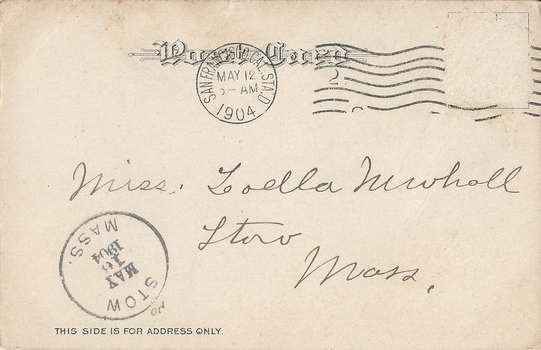 Post Card
SAN FRANCISCO, CAL. STA. D
MAY 12
5-AM
1904
2
Miss. Loella Newhall
Stow
Mass.
STOW
MAY
16
1904
MASS.
THIS SIDE IS FOR ADDRESS ONLY.